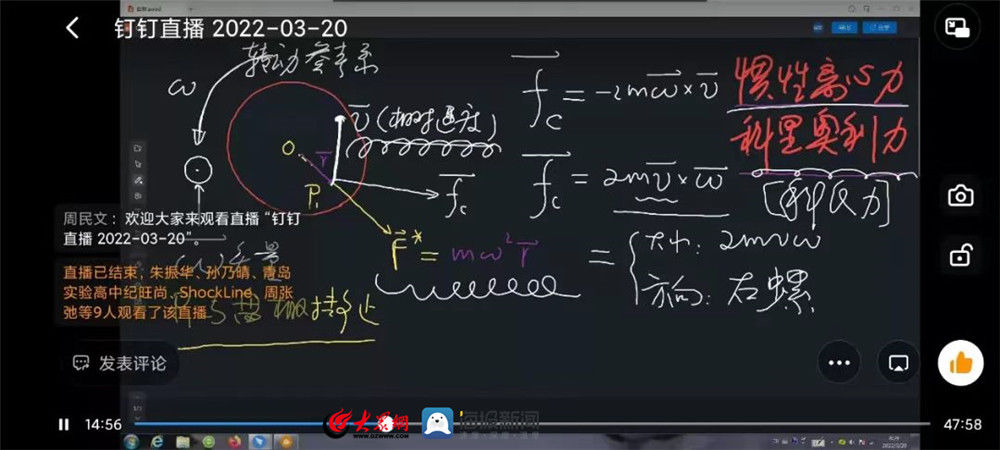 钉钉直播 2022-03-20
转动参考系
ω
O
r
P
v (相对速度)
f_c
F* = mω² r
f_c = -2mω×v
f_c = 2mv×ω
= { 大小: 2mvω
方向: 右螺
惯性离心力
科里奥利力
[科氏力]
周民文：欢迎大家来观看直播“钉钉
直播 2022-03-20”。
直播已结束，朱振华、孙乃晴、青岛
实验高中纪旺尚、ShockLine、周张
弛等9人观看了该直播
发表评论
14:56
47:58
大众网
WWW.DZWWW.COM
海报新闻